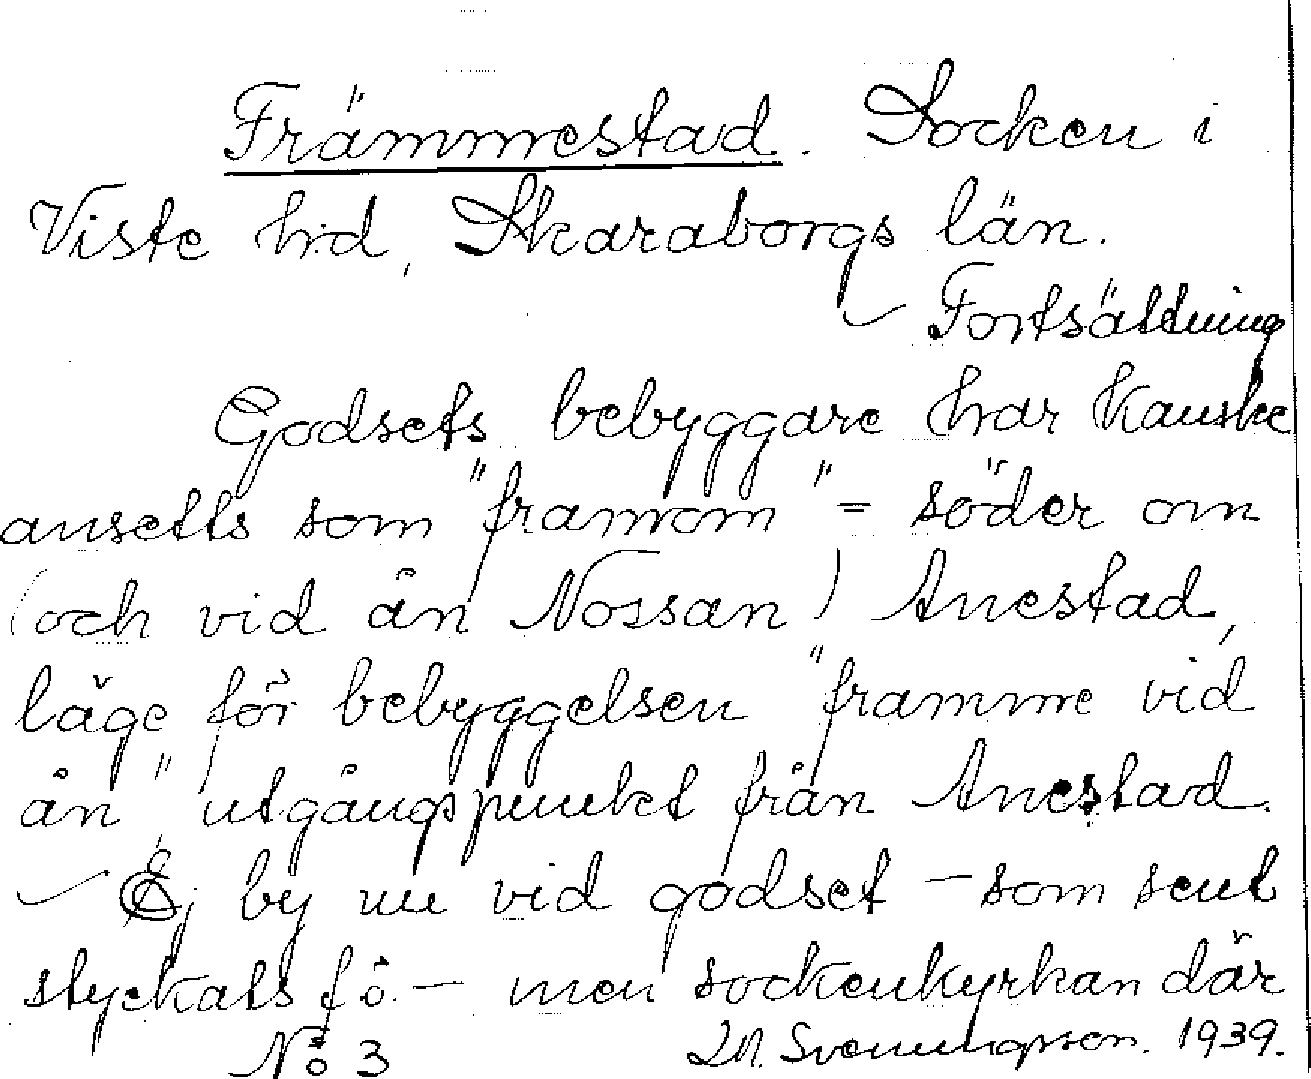 Främmestad. Socken i
Viste hd, Skaraborgs län.
Fortsättning
Godsets bebyggare har kanske
ansetts som "framom" = söder om
(och vid ån Nossan) Anestad,
läge för bebyggelsen "framme vid
ån", utgångspunkt från Anestad.
Ej by nu vid godset - som sent
styckats fö. - men sockenkyrkan där
No 3 Svenungsson. 1939.